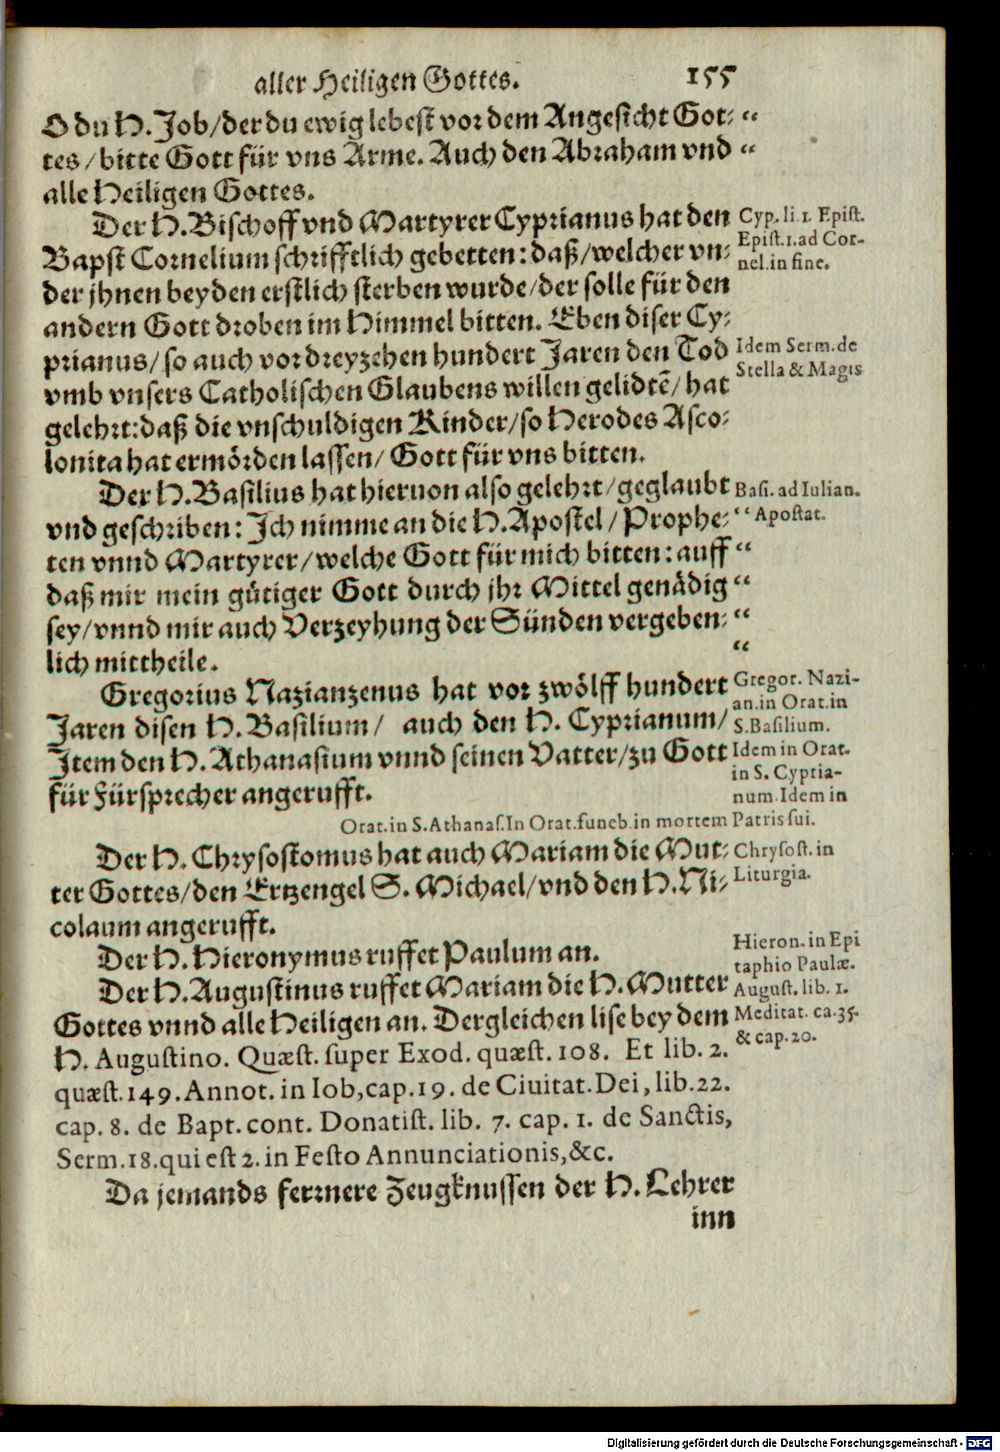 aller Heiligen Gottes. 155
O du H. Job/der du ewig lebest vor dem Angesicht Got: “
tes/bitte Gott für vns Arme. Auch den Abraham vnd “
alle Heiligen Gottes.
Der H. Bischoff vnd Martyrer Cyprianus hat den
Cyp. li. 1. Epist.
Bapst Cornelium schrifftlich gebetten: daß/welcher vn:
Epist. 1. ad Cor-
nel. in fine.
der jhnen beyden erstlich sterben wurde/der solle für den
andern Gott droben im Himmel bitten. Eben diser Cy:
prianus/so auch vor dreyzehen hundert Jaren den Tod
Idem Serm. de
Stella & Magis
vmb vnsers Catholischen Glaubens willen gelidtē/hat
gelehrt: daß die vnschuldigen Kinder/so Herodes Asco:
lonita hat ermörden lassen/ Gott für vns bitten.
Der H. Basilius hat hieruon also gelehrt/geglaubt
Basi. ad Iulian.
vnd geschriben: Ich nimme an die H. Apostel/Prophe: “
Apostat.
ten vnnd Martyrer/welche Gott für mich bitten: auff “
daß mir mein gütiger Gott durch jhr Mittel genädig “
sey/vnnd mir auch Verzeyhung der Sünden vergeben: “
lich mittheile. “
Gregorius Nazianzenus hat vor zwölff hundert
Gregor. Nazi-
an. in Orat. in
Jaren disen H. Basilium/ auch den H. Cyprianum/
S. Basilium.
Item den H. Athanasium vnnd seinen Vatter/zu Gott
Idem in Orat.
in S. Cypria-
für Fürsprecher angerufft.
num. Idem in
Orat. in S. Athanas. In Orat. funeb. in mortem Patris sui.
Der H. Chrysostomus hat auch Mariam die Mut:
Chrysost. in
ter Gottes/den Ertzengel S. Michael/vnd den H. Ni:
Liturgia.
colaum angerufft.
Der H. Hieronymus ruffet Paulum an.
Hieron. in Epi
taphio Paulæ.
Der H. Augustinus ruffet Mariam die H. Mutter
August. lib. 1.
Gottes vnnd alle Heiligen an. Dergleichen lise bey dem
Meditat. ca. 35.
& cap. 20.
H. Augustino. Quæst. super Exod. quæst. 108. Et lib. 2.
quæst. 149. Annot. in Iob, cap. 19. de Ciuitat. Dei, lib. 22.
cap. 8. de Bapt. cont. Donatist. lib. 7. cap. 1. de Sanctis,
Serm. 18. qui est 2. in Festo Annunciationis, &c.
Da jemands fermere Zeugknussen der H. Lehrer
inn
Digitalisierung gefördert durch die Deutsche Forschungsgemeinschaft - DFG